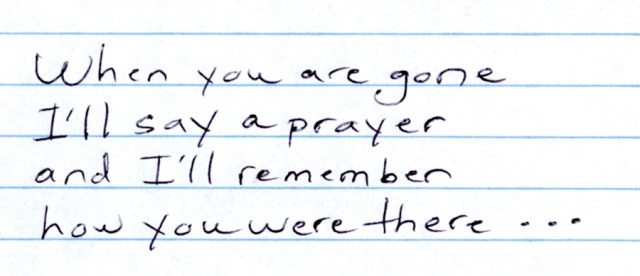 When you are gone
I'll say a prayer
and I'll remember
how you were there ...